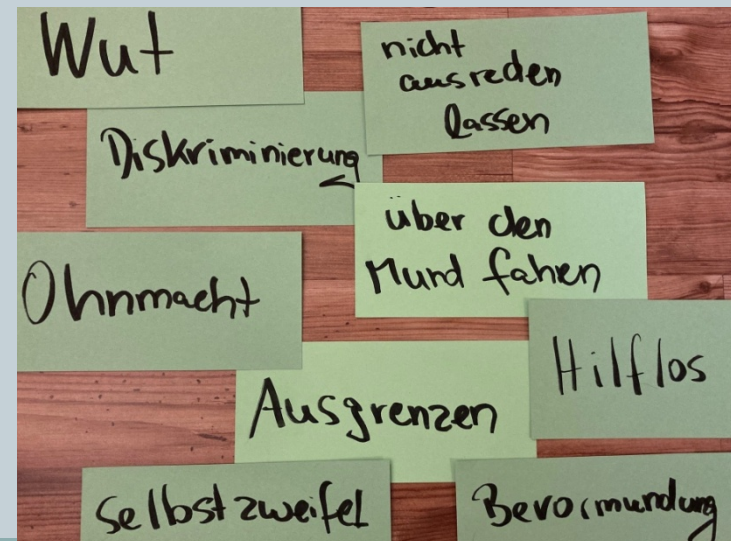 Wut
nicht
ausreden
lassen
Diskriminierung
über den
Mund fahren
Ohnmacht
Hilflos
Ausgrenzen
Selbstzweifel
Bevormundung